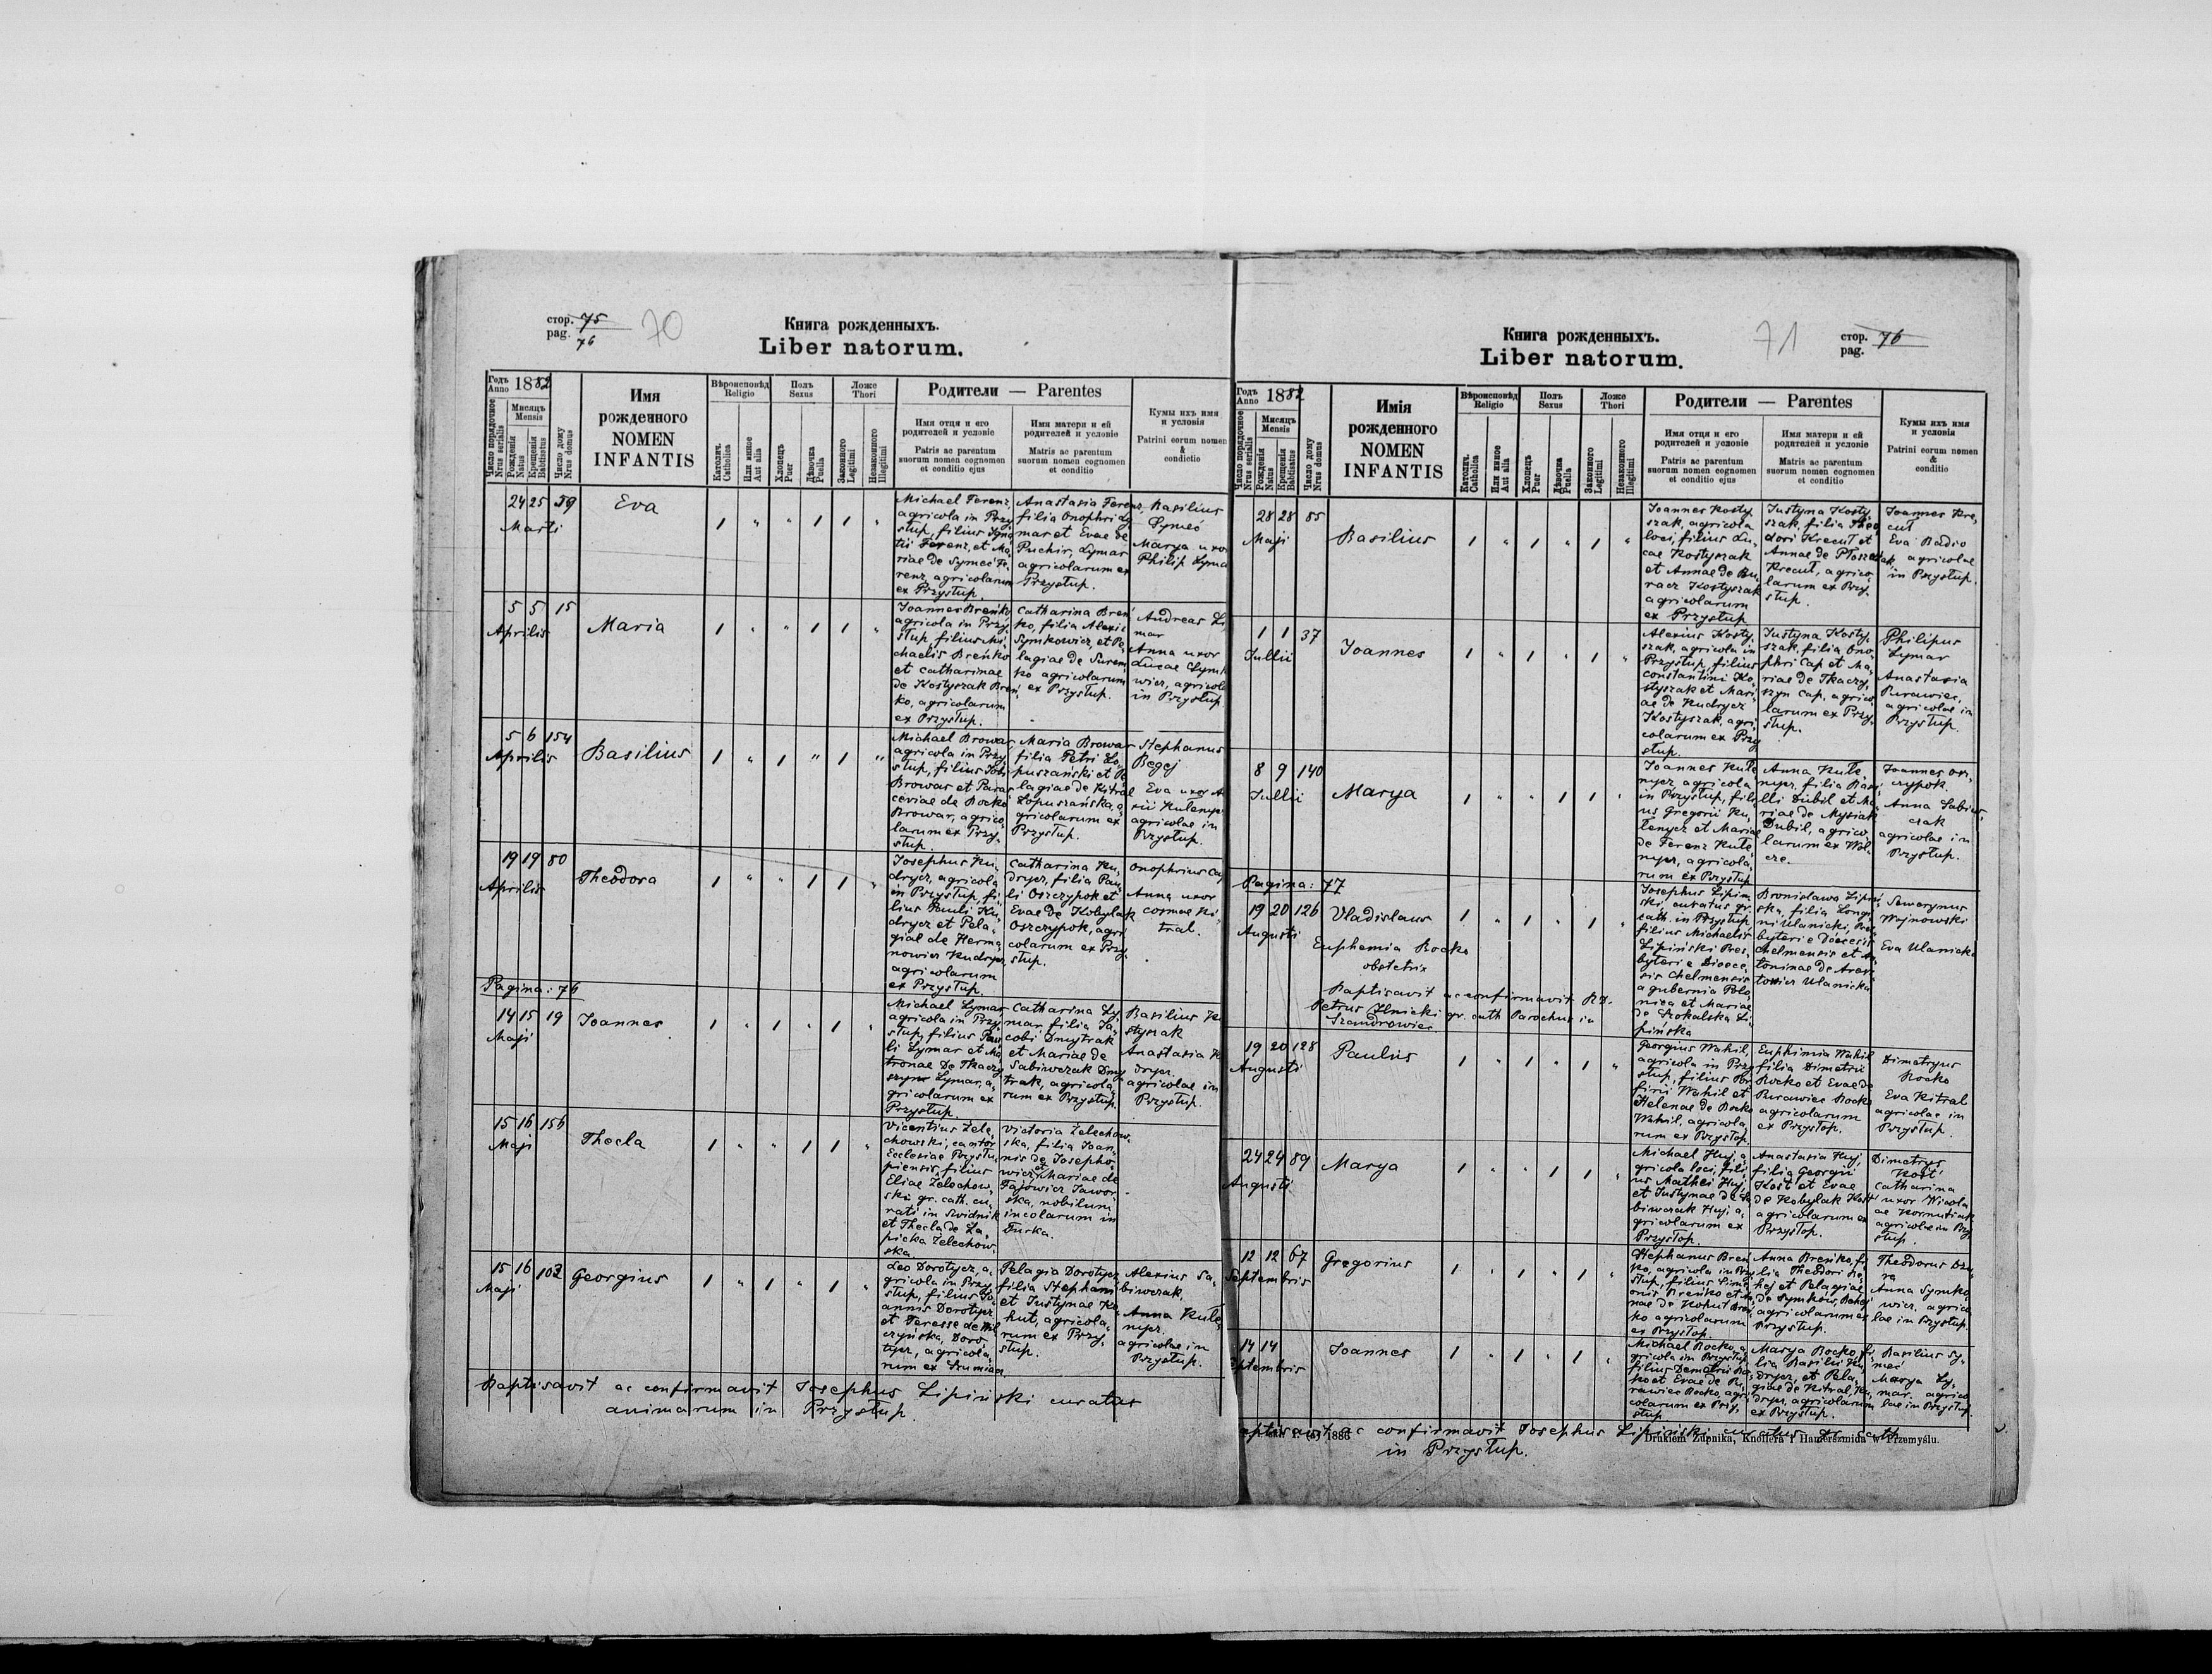 стор. 75
pag. 76
70
Книга рожденныхъ.
Liber natorum.
Годъ Anno 1882
Число порядочное Nrus serialis
Мисяць Mensis
Рожденія Natus
Крещенія Babtisatus
Число дому Nrus domus
Имя рожденного
NOMEN INFANTIS
Вѣроисповѣд Religio
Католич. Catholica
Или инное Aut alia
Полъ Sexus
Хлопець Puer
Дѣвочка Puella
Ложе Thori
Законного Legitimi
Незаконного Illegitimi
Родители — Parentes
Имя отця и его родителей и условіе
Patris ac parentum suorum nomen cognomen et conditio ejus
Имя матери и ей родителей и условіе
Matris ac parentum suorum nomen cognomen et conditio
Кумы ихъ имя и условія
Patrini eorum nomen & condictio
24 25 59
Marti
Eva
Michael Ferenz,
agricola in Przy
stup, filius Igna
tii Ferenz, et Ma
riae de Symeć Fe
renz, agricolarum
ex Przystup.
Anastasia Ferenz,
filia Onophri Ly
mar et Evae de
Puchir, Lymar
agricolarum ex
Przystup.
Basilius
Symeć
Marya uxor
Philip Lyma
5 5 15
Aprilis
Maria
Joannes Breńko
agricola in Przy
stup, filius Mi
chaelis Breńko
et Catharinae
de Kostyszak Breń
ko, agricolarum
ex Przystup.
Catharina Breń
ko, filia Alexii
Symkowicz et Pe
lagiae de Surem
ko agricolarum
ex Przystup.
Andreas Ly
mar
Anna uxor
Lucae Symko
wicz, agricole
in Przystup
5 6 154
Aprilis
Basilius
Michael Browar,
agricola in Przy
stup, filius Jobi
Browar et Paras
ceviae de Bocko
Browar, agrico
larum ex Przy
stup.
Maria Browar
filia Petri Ło
puszański et Pe
lagiae de Kitral
Łopuszańska, a
gricolarum ex
Przystup.
Stephanus
Begej
Eva uxor A
xii Kulenycz
agricolae in
Przystup.
19 19 80
Aprilis
Theodora
Josephus Ku
drycz, agricola
in Przystup, fi
lius Pauli Ku
drycz et Pela
giae de Herma
nowicz Kudrycz,
agricolarum
ex Przystup
Catharina Ku
drycz, filia Pau
li Oszczypok et
Evae de Kobylak
Oszczypok, agri
colarum ex Przy
stup.
Onophrius Cap
Anna uxor
Cosmae Ki
tral.
Pagina: 76
14 15 19
Maji
Joannes
Michael Lymar
agricola in Przy
stup, filius Pau
li Lymar et Ma
tronae De Tkaczy
szyn Lymar, a
gricolarum ex
Przystup.
Catharina Ly
mar, filia Ja
cobi Dmytrak
et Mariae de
Sabiwczak Dmy
trak, agricola
rum ex Przystup.
Basilius Ko
styszak
Anastasia K
drycz.
agricolae in
Przystup.
15 16 156
Maji
Thecla
Vicentius Żele
chowski, cantor
Ecclesiae Przystu
piensis, filius
Eliae Żelechow
ski gr. cath. cu
rati in Swidnik
et Thecla de La
picka Żelechow
ska
Victoria Żelechow
ska, filia Joan
nis de Josepho
wicz et Mariae de
Fajowicz Jawor
ska, nobilium
incolarum in
Turka.
15 16 103
Maji
Georgius
Leo Dorotycz, a
gricola in Przy
stup, filius Jo
annis Dorotycz
et Teresse de Wil
czyńska, Doro
tycz, agricola
rum ex Szumiacz
Pelagia Dorotycz
filia Stephani
et Justynae Ko
hut, agricola
rum ex Przy
stup.
Alexius Sa
biwczak.
Anna Kule
nycz.
agricolae in
Przystup.
Baptisavit ac confirmavit Josephus Lipiński curatus
animarum in Przystup.
71
стор. 76
pag.
Книга рожденныхъ.
Liber natorum.
Годъ Anno 1882
Число порядочное Nrus serialis
Мисяць Mensis
Рожденія Natus
Крещенія Babtisatus
Число дому Nrus domus
Имія рожденного
NOMEN INFANTIS
Вѣроисповѣд Religio
Католич. Catholica
Или инное Aut alia
Полъ Sexus
Хлопець Puer
Дѣвочка Puella
Ложе Thori
Законного Legitimi
Незаконного Illegitimi
Родители — Parentes
Имя отця и его родителей и условіе
Patris ac parentum suorum nomen cognomen et conditio ejus
Имя матери и ей родителей и условіе
Matris ac parentum suorum nomen cognomen et conditio
Кумы ихъ имя и условія
Patrini eorum nomen & conditio
28 28 85
Maji
Basilius
Joannes Kosty
szak, agricola
loci, filius Lu
cae Kostyszak
et Annae de Bu
racz Kostyszak
agricolarum
ex Przystup
Justyna Kosty
szak, filia Theo
dori Krecut et
Annae de Płoszczak
Krecut, agrico
larum ex Przy
stup.
Joannes Kre
cut
Eva Badio
agricolae
in Przystup.
1 1 37
Jullii
Joannes
Alexius Kosty
szak, agricola in
Przystup, filius
Constantini Ko
styszak et Mari
ae de Kudrycz
Kostyszak, agri
colarum ex Przy
stup.
Justyna Kosty
szak, filia Ono
phri Cap et Ma
riae de Tkaczy
szyn Cap, agrico
larum ex Przy
stup.
Philipus
Lymar
Anastasia
Purawiec,
agricolae in
Przystup.
8 9 140
Jullii
Marya
Joannes Kule
nycz, agricola
in Przystup, fili
us Gregorii Ku
lenycz et Mariae
de Ferenz Kule
nycz, agricola
rum ex Przystup
Anna Kule
nycz, filia Basi
lli Dubil et Ma
riae de Mysiak
Dubil, agrico
larum ex Wol
cze.
Joannes Osz
czypok.
Anna Sabiw
czak
agricolae in
Przystup.
Pagina: 77
19 20 126
Augusti
Vladislaus
Euphemia Bocko
obstetrix
Baptisavit ac confirmavit RD.
Petrus Ilnicki gr. cath Parochus in
Szandrowiec
Josephus Lipiń
ski, curatus gr.
cath. in Przystup,
filius Michaelis
Lipiński Pres
byteri e Dioece
sis Chelmensis
a gubernia Polo
nica et Mariae
de Szokalska Li
pińska
Bronislawa Lipiń
ska, filia Longi
ni Ulanicki, Pres
byteri e Dioecesis
Chelmensis et An
toninae de Aren
towicz Ulanicka
Sewerynus
Wojnowski
Eva Ulanicka
19 20 128
Augusti
Paulus
Georgius Wahil,
agricola in Przy
stup, filius Por
firii Wahil et
Helenae de Bocko
Wahil, agricola
rum ex Przystop
Euphimia Wahil
filia Dimetrii
Rocko et Evae de
Purawiec Rocko
agricolarum
ex Przystop.
Dimetryus
Rocko
Eva Kitral
agricolae in
Przystup.
24 24 89
Augusti
Marya
Michael Huj, a
gricola loci, fili
us Mathei Huj
et Justynae de Sa
biwczak Huj a
gricolarum ex
Przystop
Anastasia Huj,
filia Georgii
Kost et Evae
de Kobylak Kost
agricolarum ex
Przystop.
Dimetrys
Kost
Catharina
uxor Nicola
ae Kornutiak
agricolae in Przy
stup.
12 12 67
Septembris
Gregorius
Stephanus Breń
ko, agricola in Przy
stup, filius Sime
onis Breńko et An
nae de Kohut Breń
ko agricolarum
ex Przystop.
Anna Breńko, fi
lia Theodori
et Pelagiae
de Symkow
agricolarum ex
Przystup.
Theodorus Dzu
ra
Anna Symko
wicz. agrico
lae in Przystup.
14 14
Septembris
Joannes
Michael Rocko, a
gricola in Przystup
filius Demetrii Ro
cko et Evae de Pu
rawiec Rocko, agri
colarum ex Przy
stup
Marya Rocko, fi
lia Basilii Ku
drycz, et Pela
giae de Kitral, Ku
drycz, agricolarum
ex Przystup.
Basilius Sy
meć
Marya Ly
mar. agrico
lae in Przystup.
aptisavit ac confirmavit Josephus Lipiński curatus gr. cath.
in Przystup.
1886
Drukiem Żupnika, Knollera i Hamerszmida w Przemyślu.